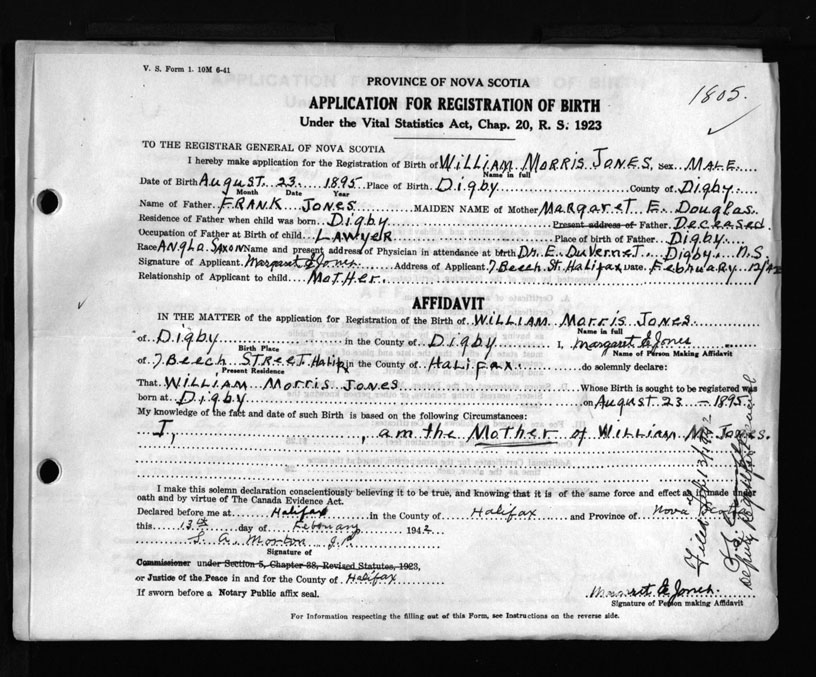 V. S. Form 1. 10M 6-41
1805.
PROVINCE OF NOVA SCOTIA
APPLICATION FOR REGISTRATION OF BIRTH
Under the Vital Statistics Act, Chap. 20, R. S. 1923
TO THE REGISTRAR GENERAL OF NOVA SCOTIA
I hereby make application for the Registration of Birth of WILLIAM MORRIS JONES. Sex MALE.
Name in full
Date of Birth August 23 1895 Place of Birth Digby County of Digby
Month Date Year
Name of Father FRANK JONES MAIDEN NAME of Mother Margaret E. Douglas.
Residence of Father when child was born Digby Present address of Father Deceased.
Occupation of Father at Birth of child LAWYER Place of birth of Father Digby.
Race Angla. Saxon Name and present address of Physician in attendance at birth Dr. E. DuVernet. Digby. N.S.
Signature of Applicant Margaret E Jones. Address of Applicant 7 Beech St. Halifax Date February 12/42
Relationship of Applicant to child MotHer.
AFFIDAVIT
IN THE MATTER of the application for Registration of the Birth of WILLIAM Morris Jones.
Name in full
of Digby in the County of Digby I, Margaret E Jones
Birth Place Name of Person Making Affidavit
of 7 Beech STREET Halifx in the County of Halifax. do solemnly declare:
Present Residence
That WILLIAM Morris JONES Whose Birth is sought to be registered was
born at Digby on August 23 - 1895.
My knowledge of the fact and date of such Birth is based on the following Circumstances:
I, , am the Mother of William M. Jones.
I make this solemn declaration conscientiously believing it to be true, and knowing that it is of the same force and effect as if made under
oath and by virtue of The Canada Evidence Act.
Declared before me at Halifax In the County of Halifax and Province of Nova Scotia
this 13th day of February 1942
S. A. Morton J.P.
Signature of
Commissioner under Section 5, Chapter 38, Revised Statutes, 1923,
or Justice of the Peace in and for the County of Halifax
If sworn before a Notary Public affix seal.
Margaret E Jones.
Signature of Person making Affidavit
For Information respecting the filling out of this Form, see Instructions on the reverse side.
Filed Feb 13/1942
Deputy Registrar General